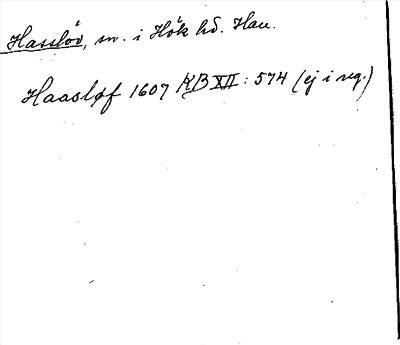 Hasslöv, sn. i Hök hd. Hall.
Haasløf 1607 KB XII : 574 (ej i reg.)